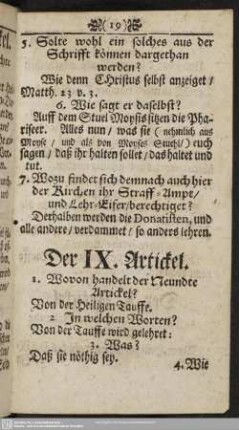 (19)
5. Solte wohl ein solches aus der
Schrifft können dargethan
werden?
Wie denn CHristus selbst anzeiget /
Matth. 23 v. 3.
6. Wie sagt er daselbst?
Auff dem Stuel Moysis sitzen die Pha-
riseer. Alles nun / was sie ( nehmlich aus
Moyse / und als von Moyses Stuehl /) euch
sagen / daß ihr halten sollet / das haltet und
tut.
7. Wozu findet sich demnach auch hier
der Kirchen ihr Straff-Ampt /
und Lehr-Eifer / berechtiget?
Derhalben werden die Donatisten, und
alle andere / verdammet / so anders lehren.
Der IX. Artickel.
1. Wovon handelt der Neundte
Artickel?
Von der Heiligen Tauffe.
2 In welchen Worten?
Von der Tauffe wird gelehret:
3. Was?
Daß sie nöthig sey.
4. Wie